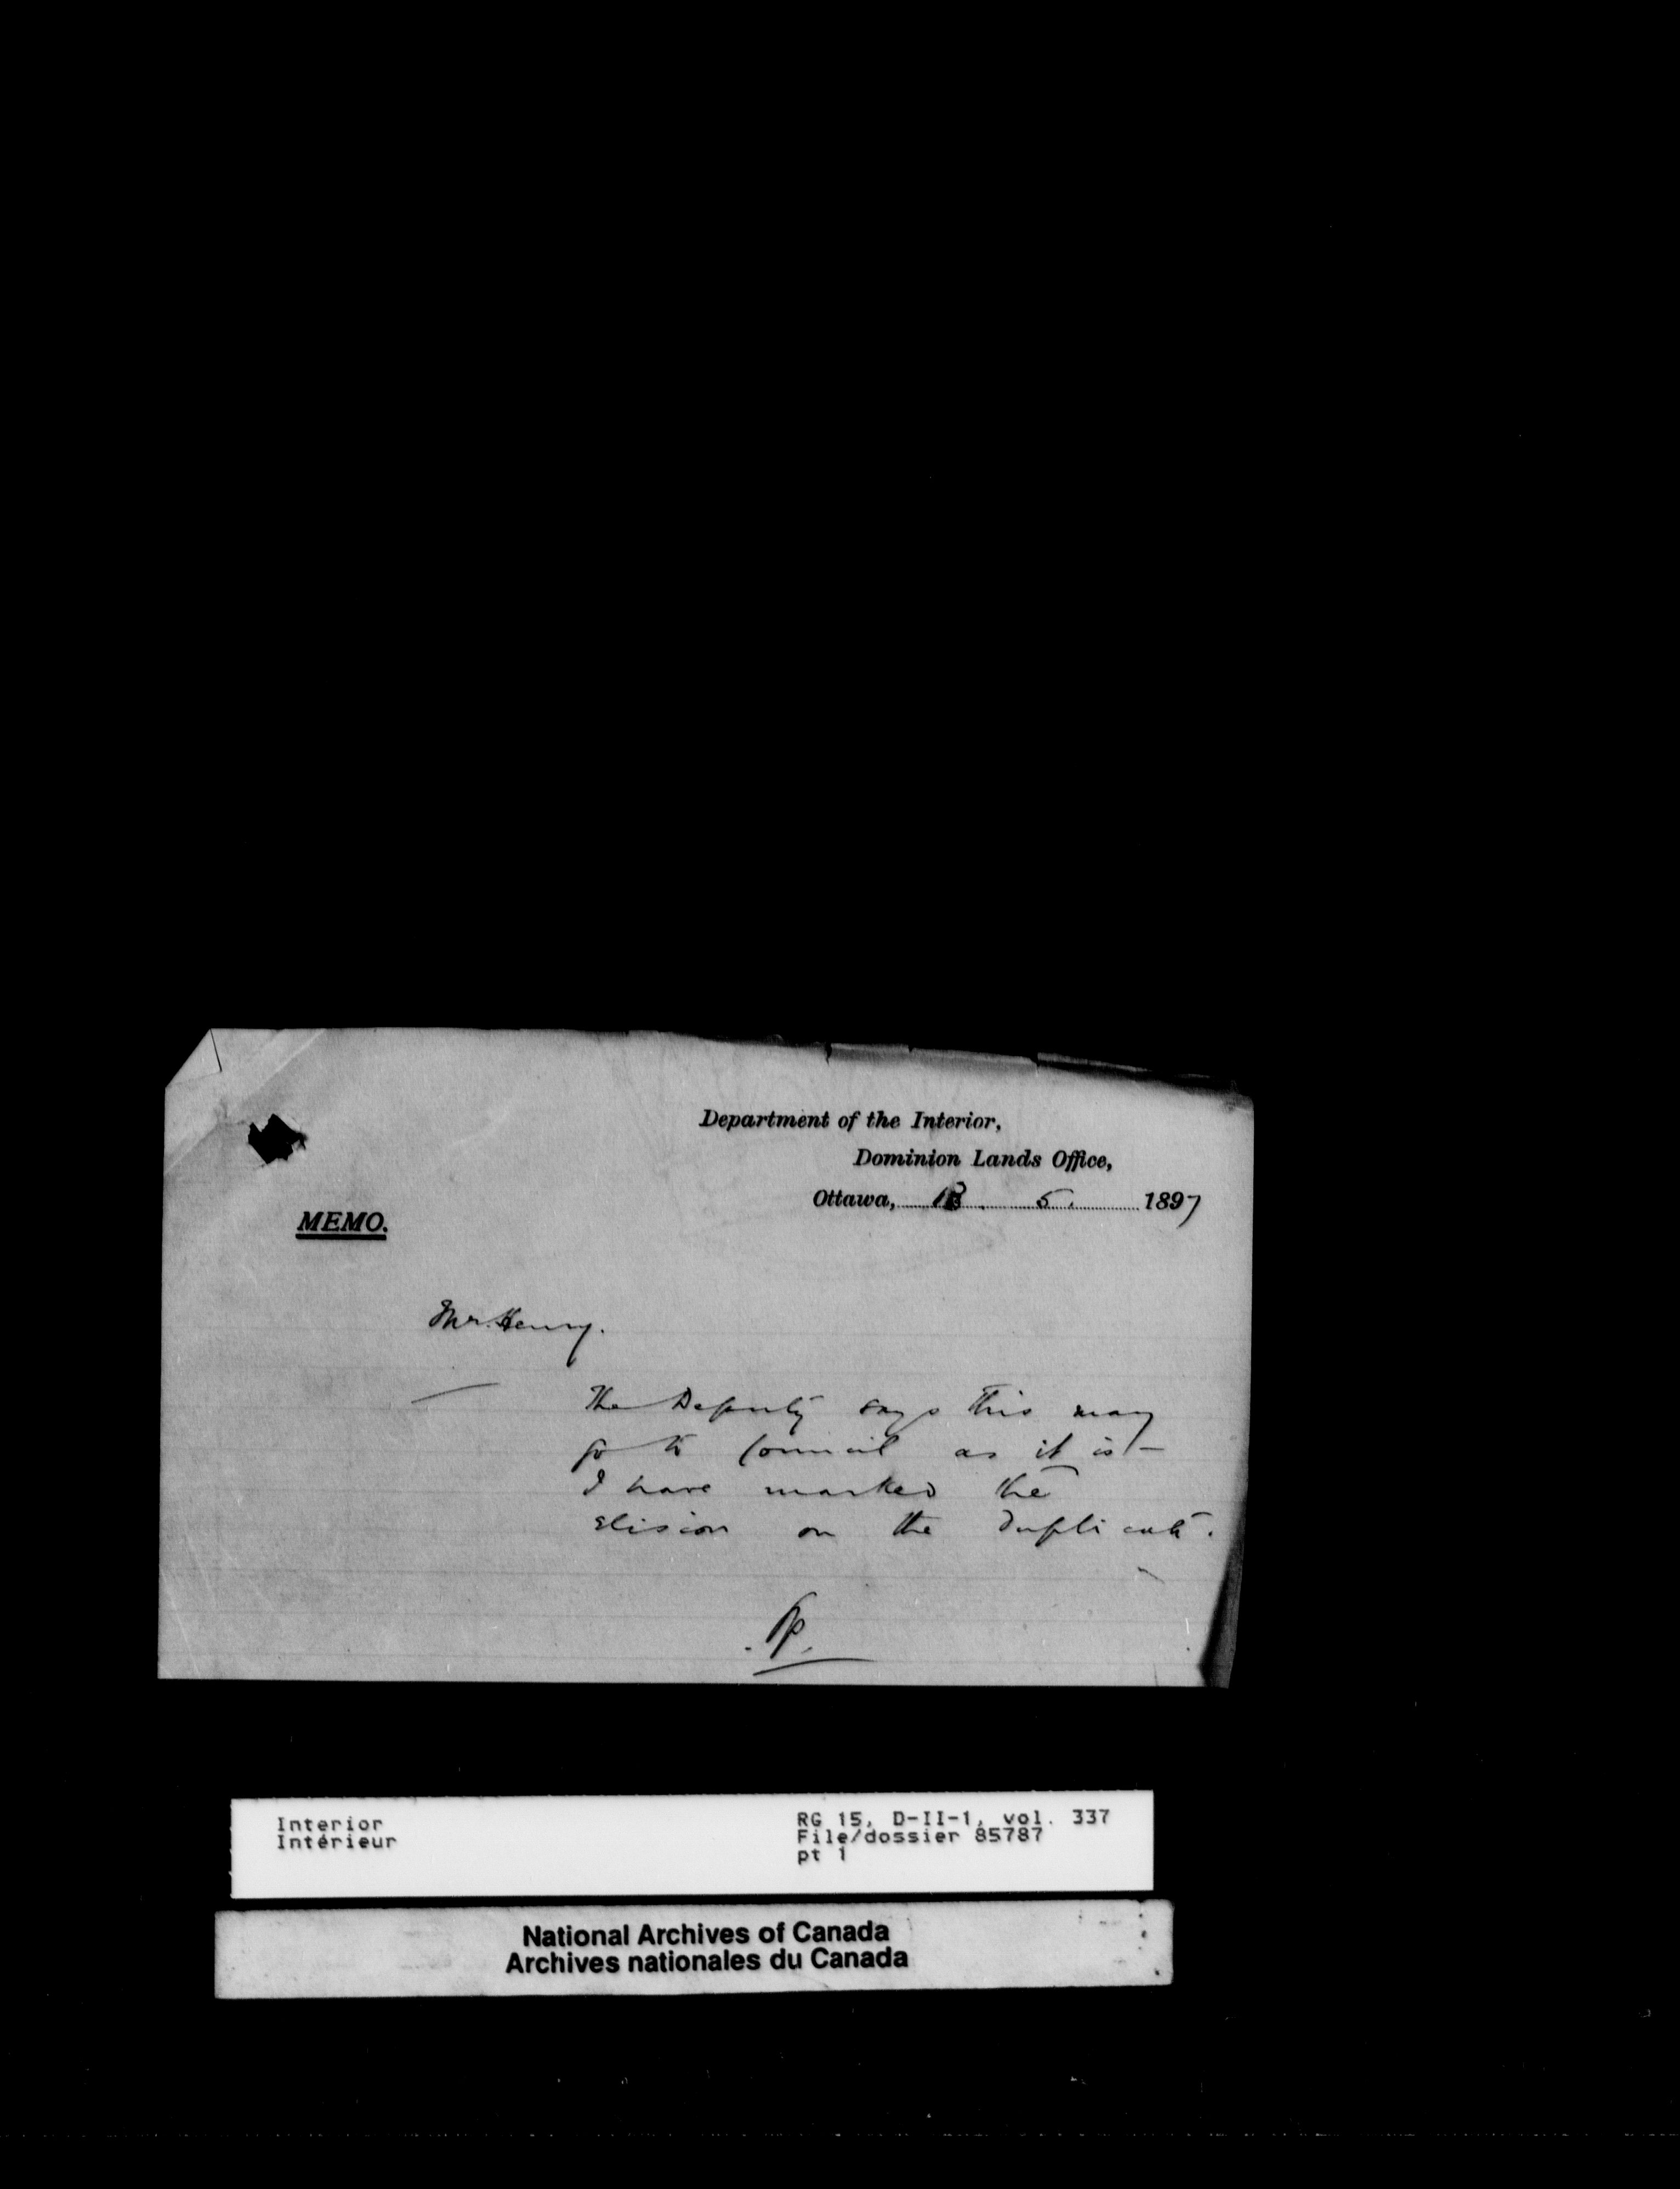 Department of the Interior,
Dominion Lands Office,
Ottawa, 18. 5. 1897
MEMO.
Mr. Henry.
The Deputy says this may
go to Council as it is —
I have marked the
elision on the duplicate.
Interior
Intérieur
RG 15, D-II-1, vol. 337
File/dossier 85787
pt 1
National Archives of Canada
Archives nationales du Canada